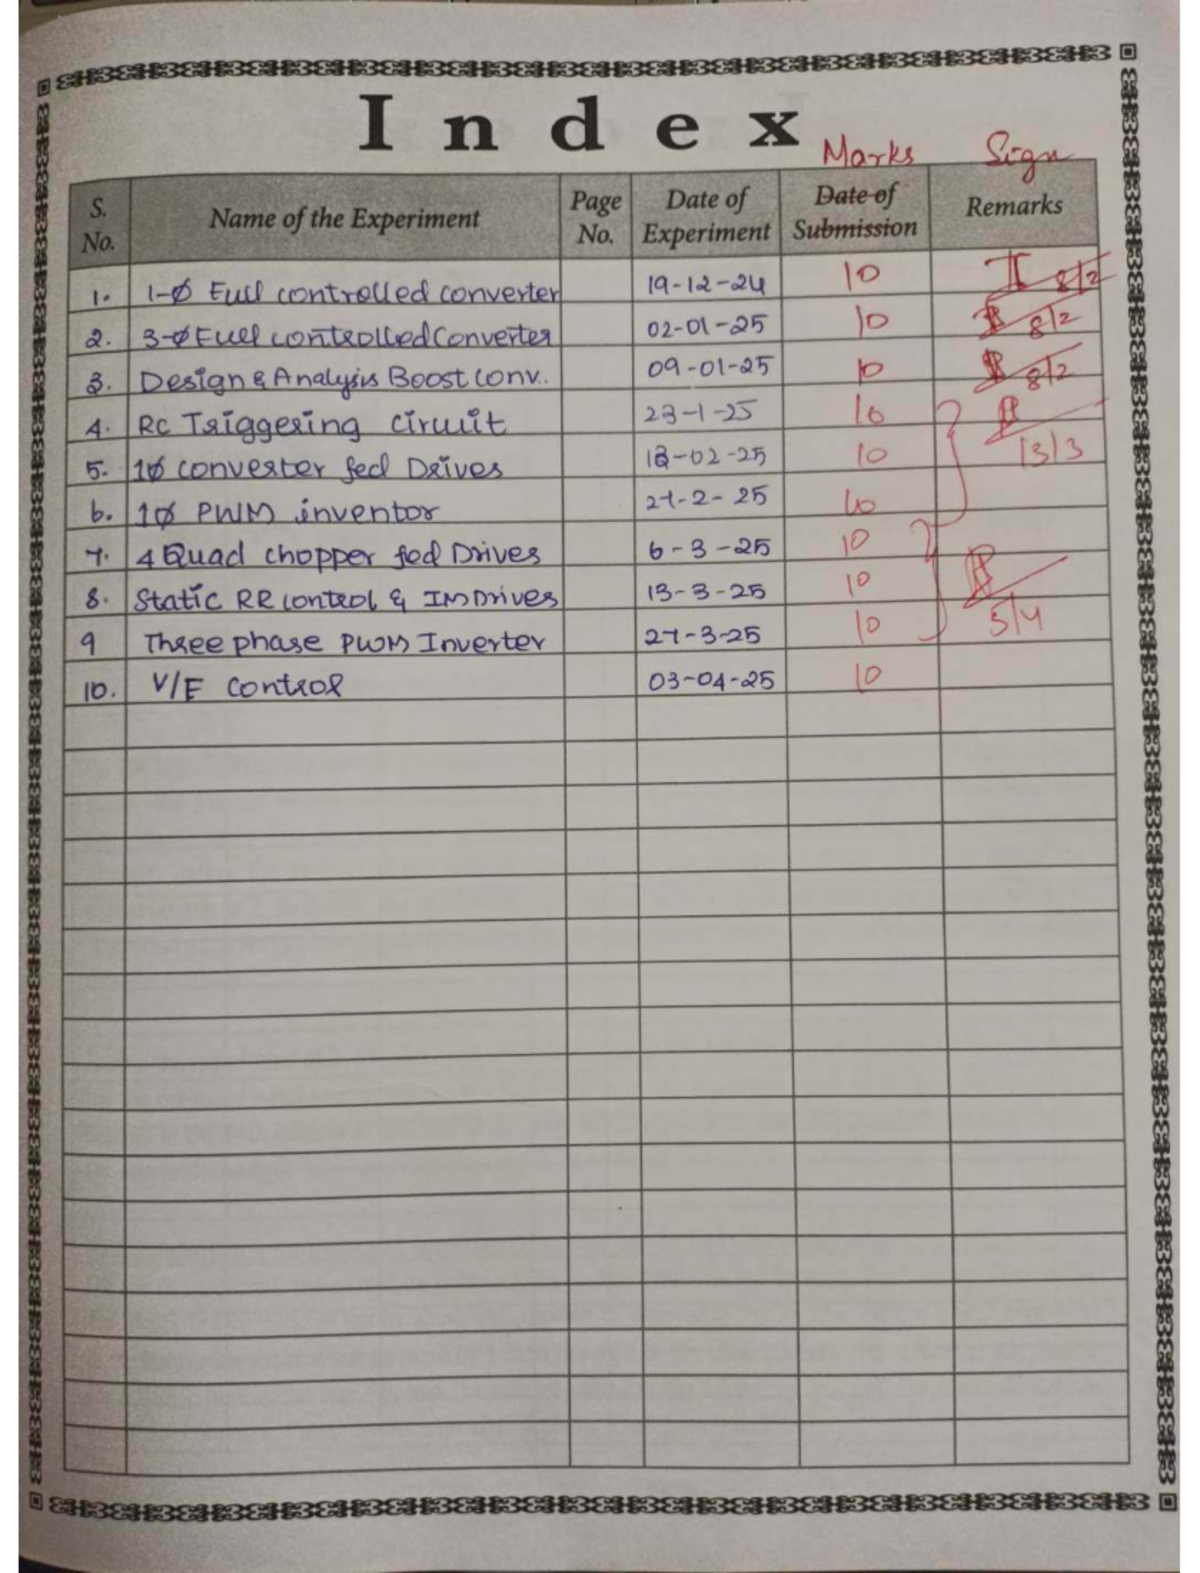 Index
Marks Sign
S. No. Name of the Experiment Page No. Date of Experiment Date of Submission Remarks
1. 1-ø Full controlled converter 19-12-24 10 8/2
2. 3-ø Full controlled Converter 02-01-25 10 8/2
3. Design & Analysis Boost Conv.. 09-01-25 10 8/2
4. RC Triggering Circuit 23-1-25 10
5. 1ø converter fed Drives 13-02-25 10 13/3
6. 1ø PWM inventor 27-2-25 10
7. 4 Quad chopper fed Drives 6-3-25 10
8. Static RR control & IM Drives 13-3-25 10
9 Three phase PWM Inverter 27-3-25 10 5/4
10. V/F Control 03-04-25 10